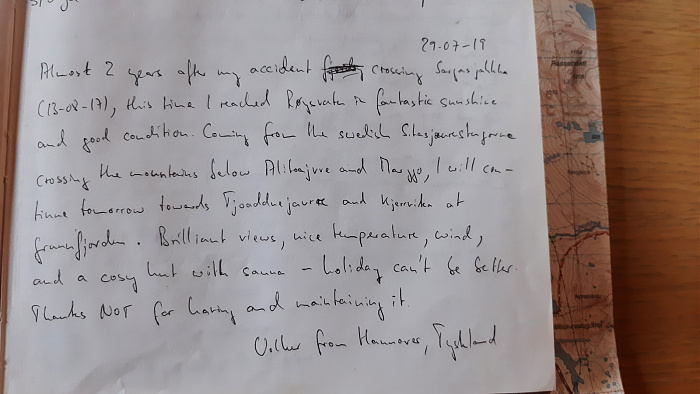 29-07-19
Almost 2 years after my accident crossing
(13-08-17), this time I reached Røyvatn in fantastic sunshine
and good condition. Coming from the swedish
crossing the mountains below and I will con-
tinue tomorrow towards and Kjerrvika at
Brilliant views, nice temperature, wind,
and a cosy hut with sauna – holiday can't be better.
Thanks NOT for having and maintaining it.
Volker from Hannover, Tyskland